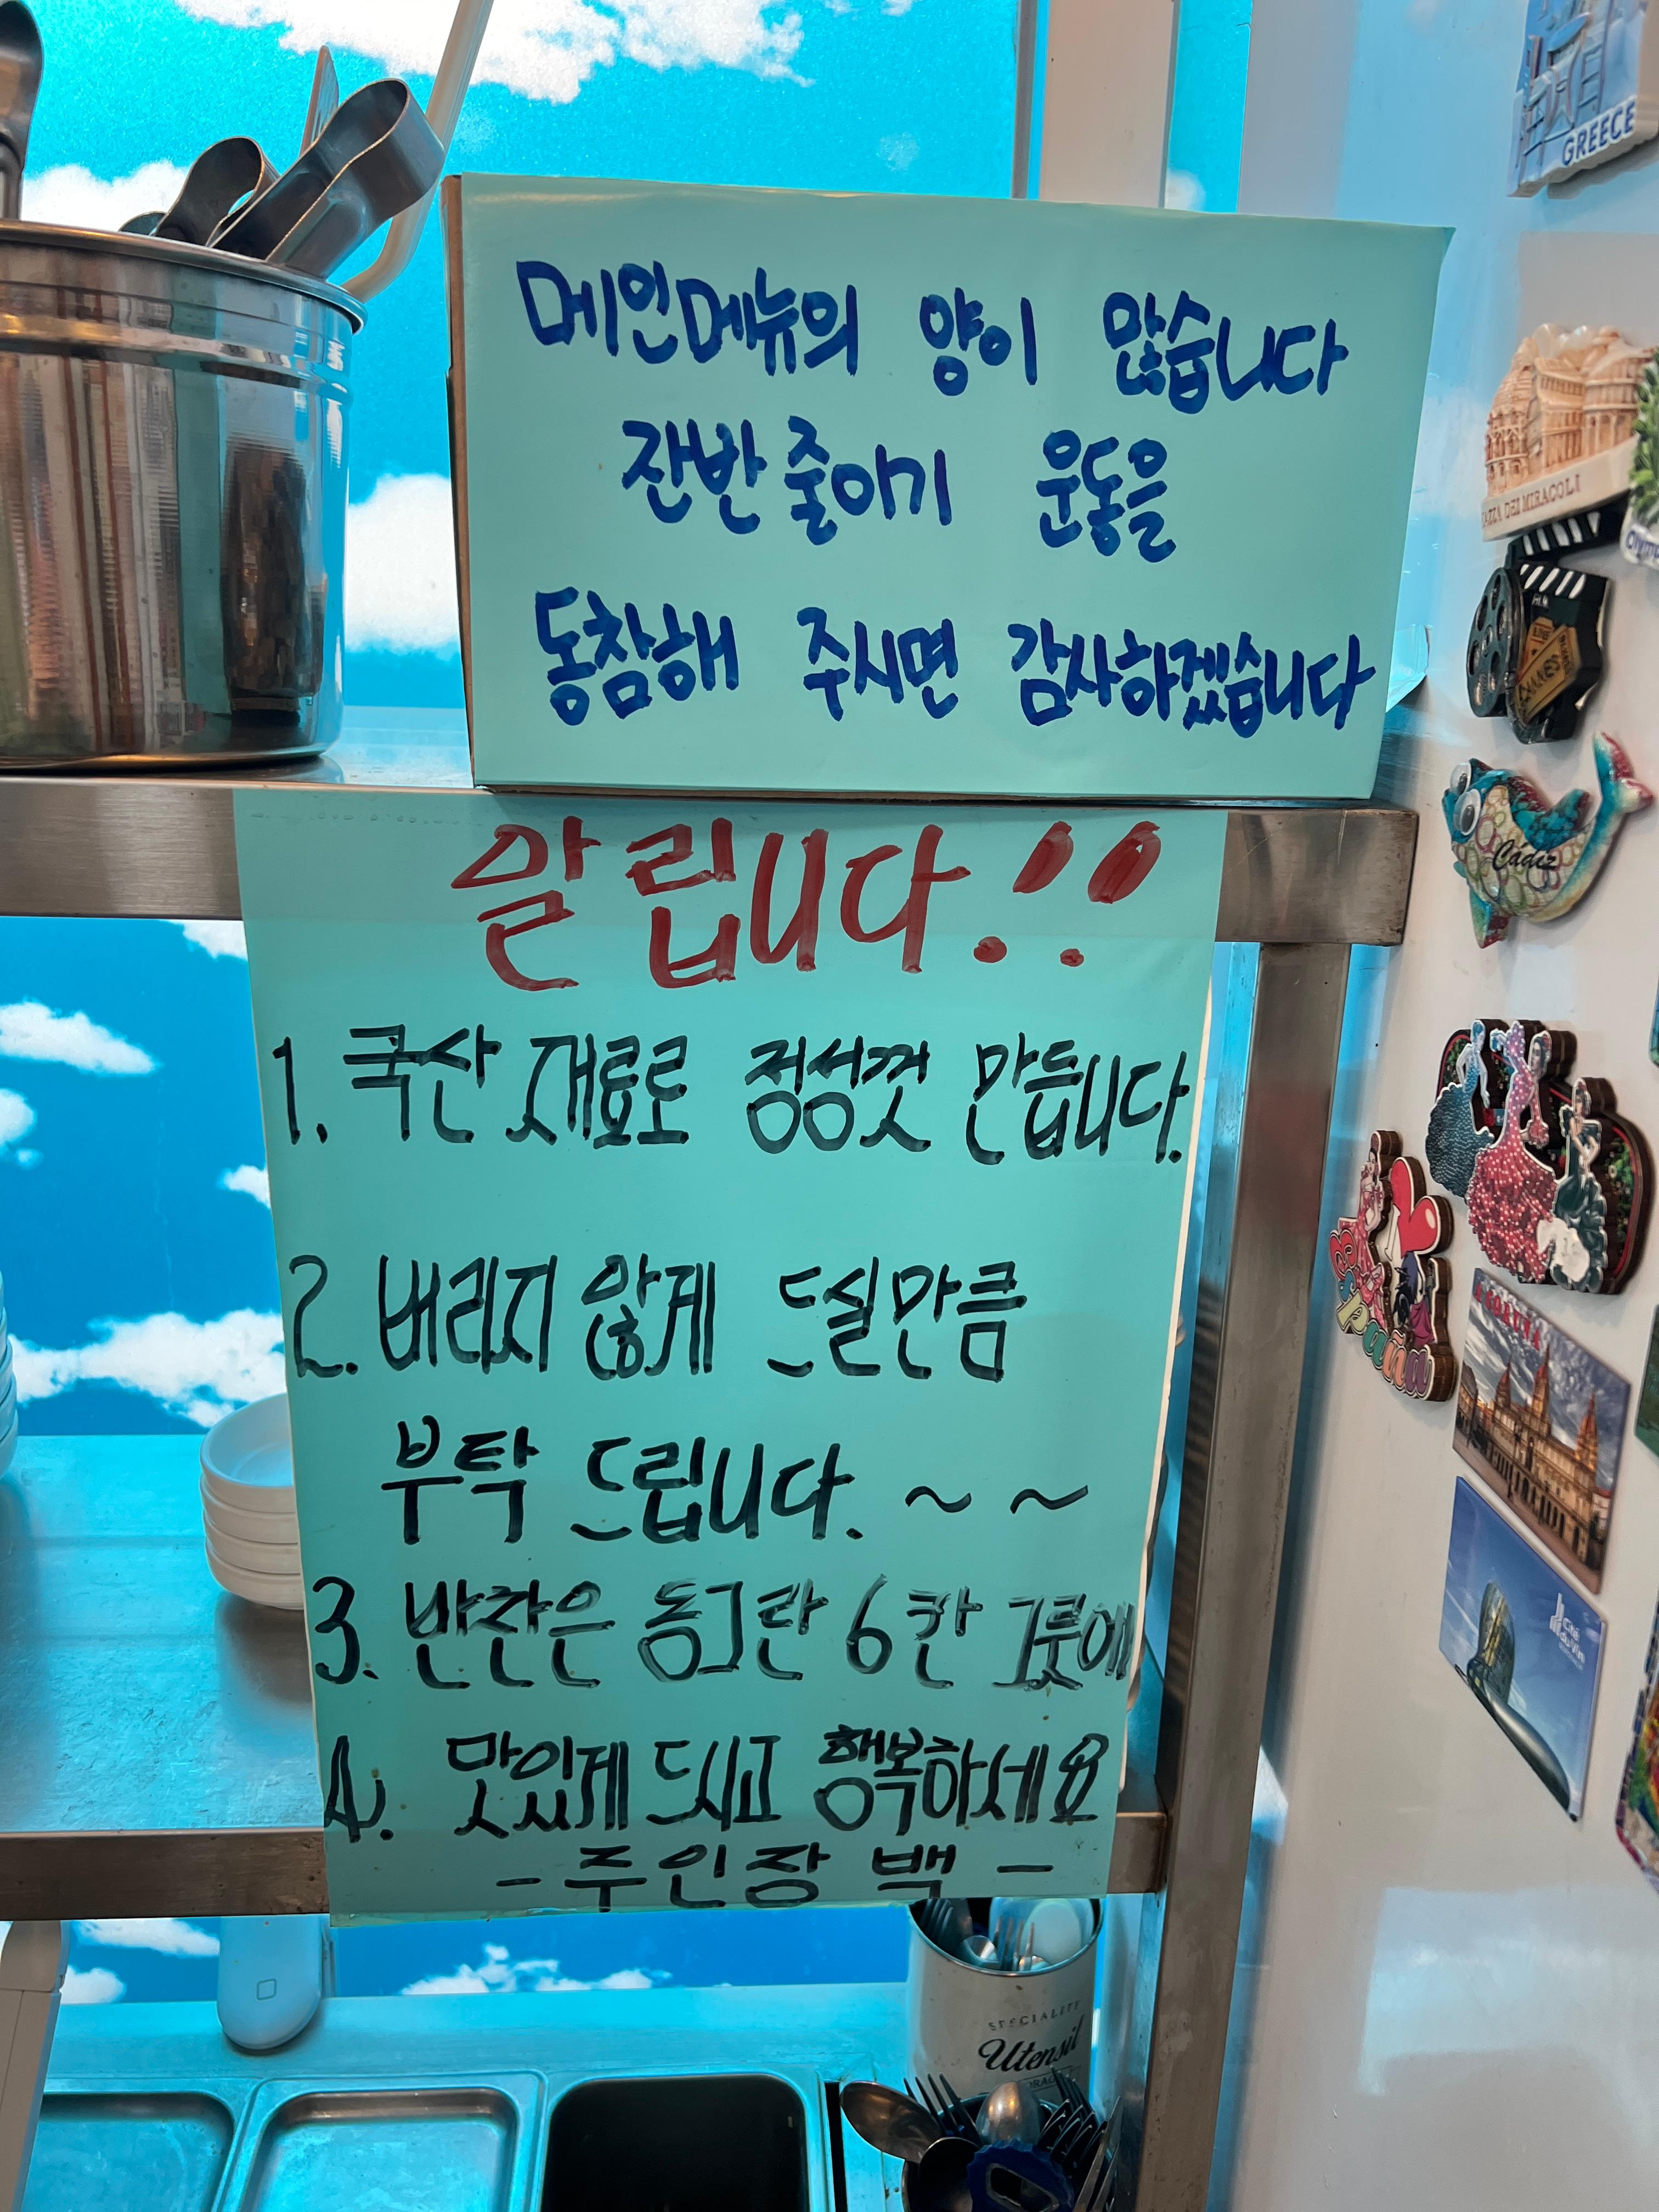 메인메뉴의 양이 많습니다
잔반 줄이기 운동을
동참해 주시면 감사하겠습니다
알립니다!!
1. 국산 재료로 정성껏 만듭니다.
2. 버리지 않게 드실만큼
부탁 드립니다. ~ ~
3. 반찬은 동그란 6칸 그릇에
4. 맛있게 드시고 행복하세요
- 주인장 백 -
GREECE
DEI MIRACOLI
CANNES
Cádiz
SPECIALITY
Utensil